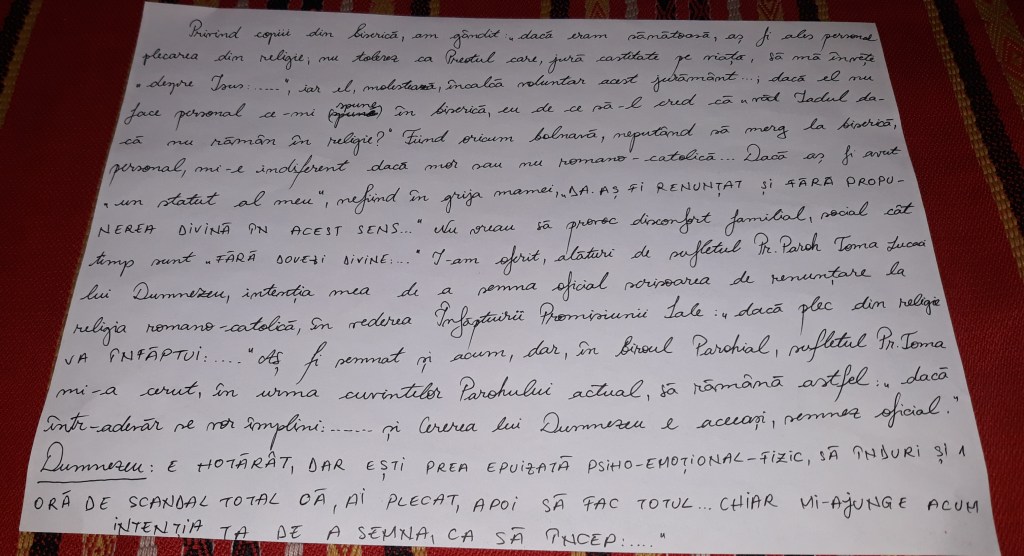 Privind copiii din biserică, am gândit: „dacă eram sănătoasă, aș fi ales personal
plecarea din religie, nu tolerez ca Preotul care, jură castitate pe viață, să mă învețe
„despre Isus:......", iar el, molestează, încalcă voluntar acest jurământ...; dacă el nu
face personal ce-mi spune în biserică, eu de ce să-l cred că „văd Iadul da-
că nu rămân în religie?" Fiind oricum bolnavă, neputând să merg la biserică,
personal, mi-e indiferent dacă mor sau nu romano-catolică... Dacă aș fi avut
„un statut al meu", nefiind în grija mamei, „DA. AȘ FI RENUNȚAT ȘI FĂRĂ PROPU-
NEREA DIVINĂ ÎN ACEST SENS..." Nu vreau să provoc disconfort familial, social cât
timp sunt „FĂRĂ DOVEZI DIVINE:..." I-am oferit, alături de sufletul Pr. Paroh Toma Lucaci
lui Dumnezeu, intenția mea de a semna oficial scrisoarea de renunțare la
religia romano-catolică, în vederea Înfăptuirii Promisiunii Sale: „dacă plec din religie
VA ÎNFĂPTUI:....." Aș fi semnat și acum, dar, în biroul Parohial, sufletul Pr. Toma
mi-a cerut, în urma cuvintelor Parohului actual, să rămână astfel: „dacă
într-adevăr se vor împlini:....... și Cererea lui Dumnezeu e aceeași, semnez oficial."
Dumnezeu: E HOTĂRÂT, DAR EȘTI PREA EPUIZATĂ PSIHO-EMOȚIONAL-FIZIC, SĂ ÎNDURI ȘI 1
ORĂ DE SCANDAL TOTAL CĂ, AI PLECAT, APOI SĂ FAC TOTUL... CHIAR MI-AJUNGE ACUM
INTENȚIA TA DE A SEMNA, CA SĂ ÎNCEP:...."